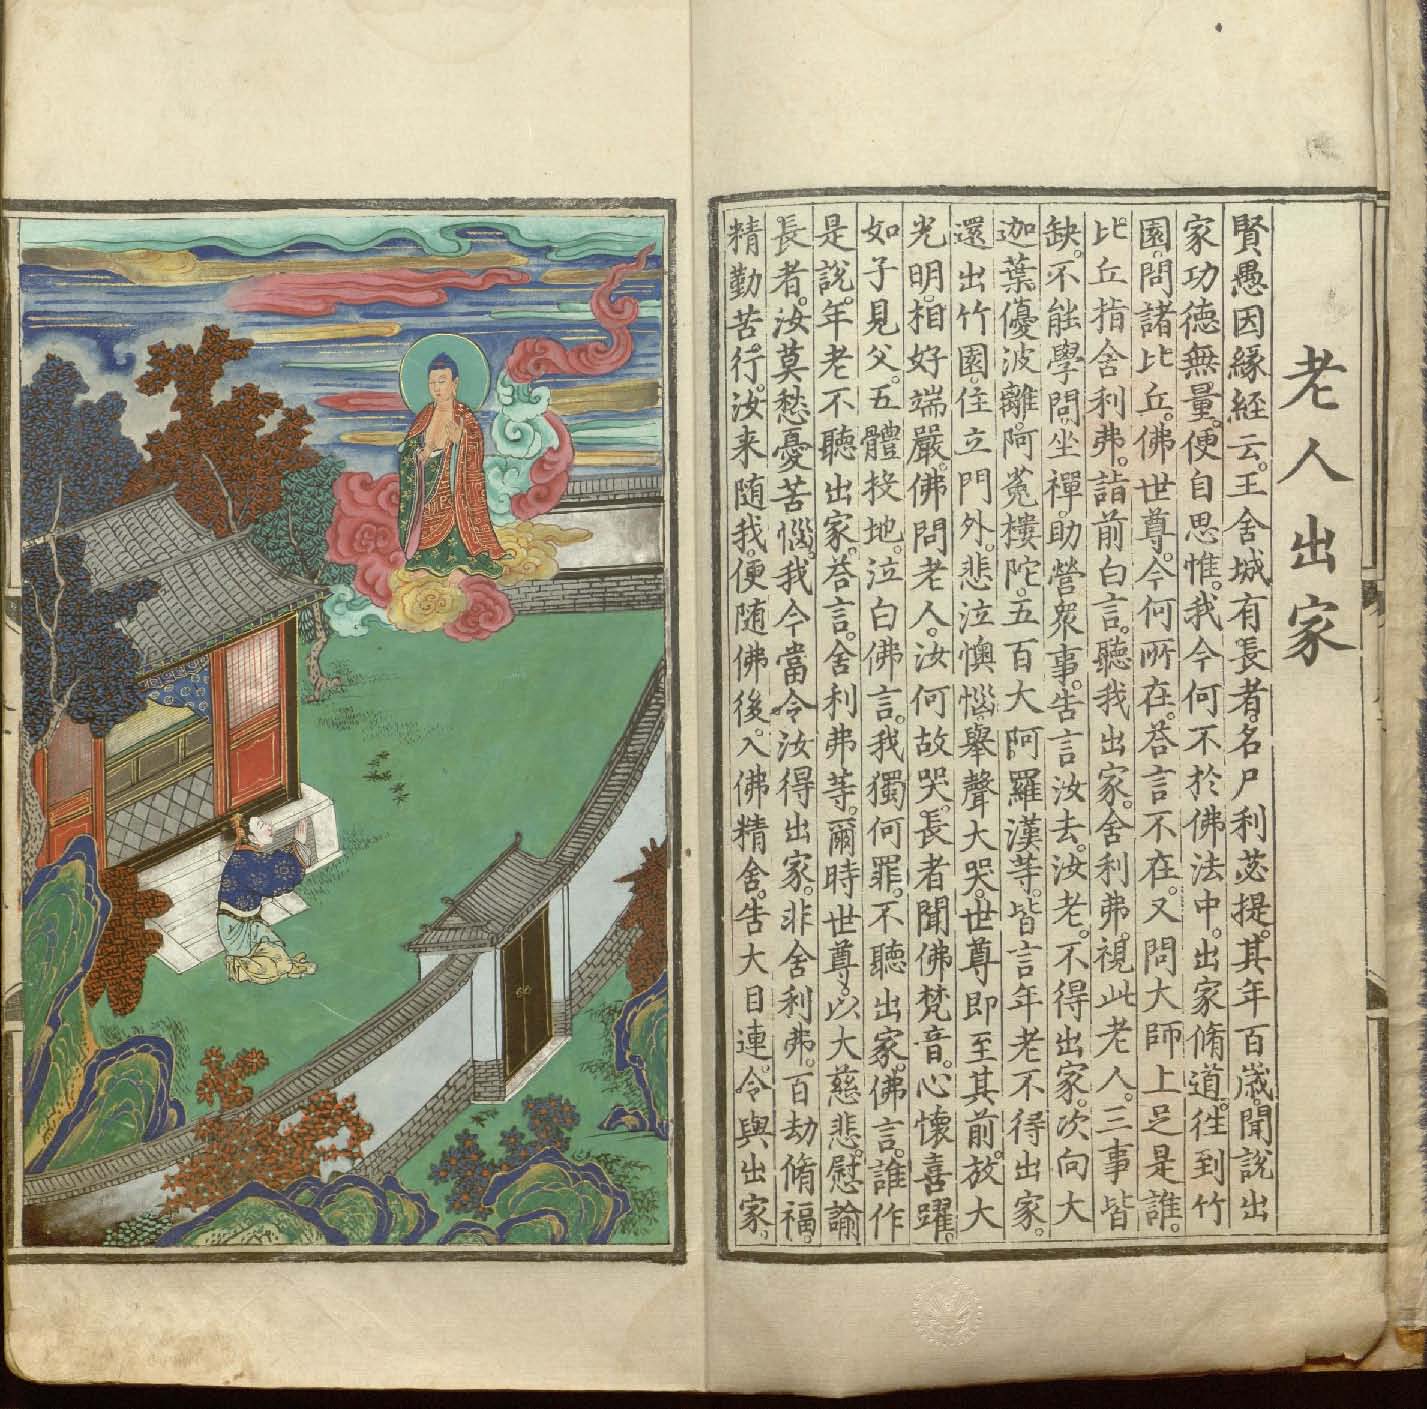 老人出家
賢愚因緣經云。王舍城有長者。名尸利苾提。其年百歲。聞說出
家功德無量。便自思惟。我今何不於佛法中。出家脩道。往到竹
園。問諸比丘。佛世尊。今何所在。荅言不在。又問大師上足是誰。
比丘指舍利弗。詣前白言。聽我出家。舍利弗。視此老人。三事皆
缺。不能學問。坐禪。助營衆事。告言汝去。汝老。不得出家。次向大
迦葉。優波離。阿㝹樓陀。五百大阿羅漢等。皆言年老不得出家。
還出竹園。住立門外。悲泣懊惱。舉聲大哭。世尊即至其前。放大
光明。相好端嚴。佛問老人。汝何故哭。長者聞佛梵音。心懷喜躍。
如子見父。五體投地。泣白佛言。我獨何罪。不聽出家。佛言。誰作
是說。年老不聽出家。荅言。舍利弗等。爾時世尊。以大慈悲。慰諭
長者。汝莫愁憂苦惱。我今當令汝得出家。非舍利弗。百劫脩福。
精勤苦行。汝来随我。便随佛後。入佛精舍。告大目連。令與出家。